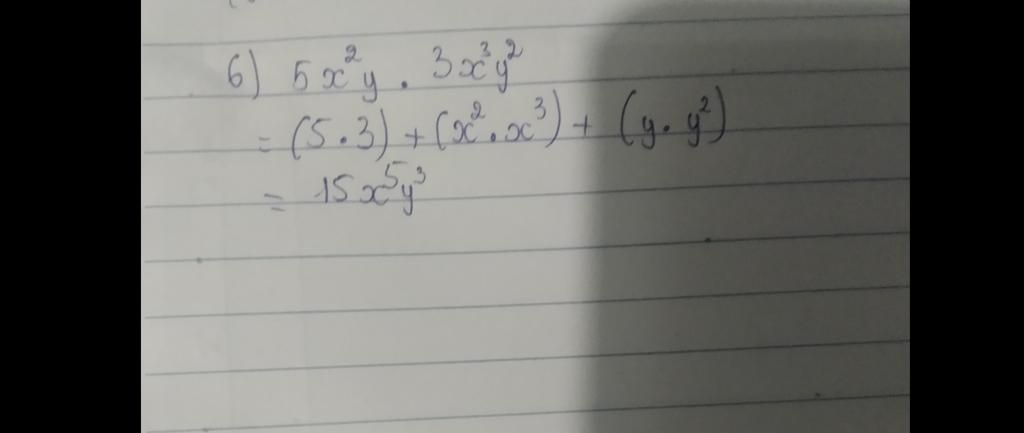 6) 5x²y . 3x³y²
= (5.3) + (x².x³) + (y.y²)
= 15x⁵y³